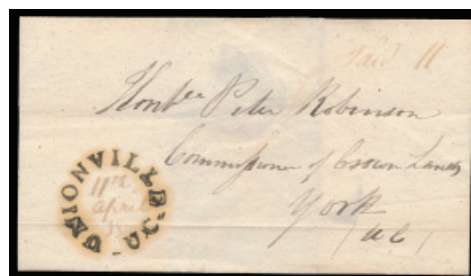 Paid 11
Honble Peter Robinson
Commissioner of Crown Lands
York
U C
UNIONVILLE U.C.
11th
April